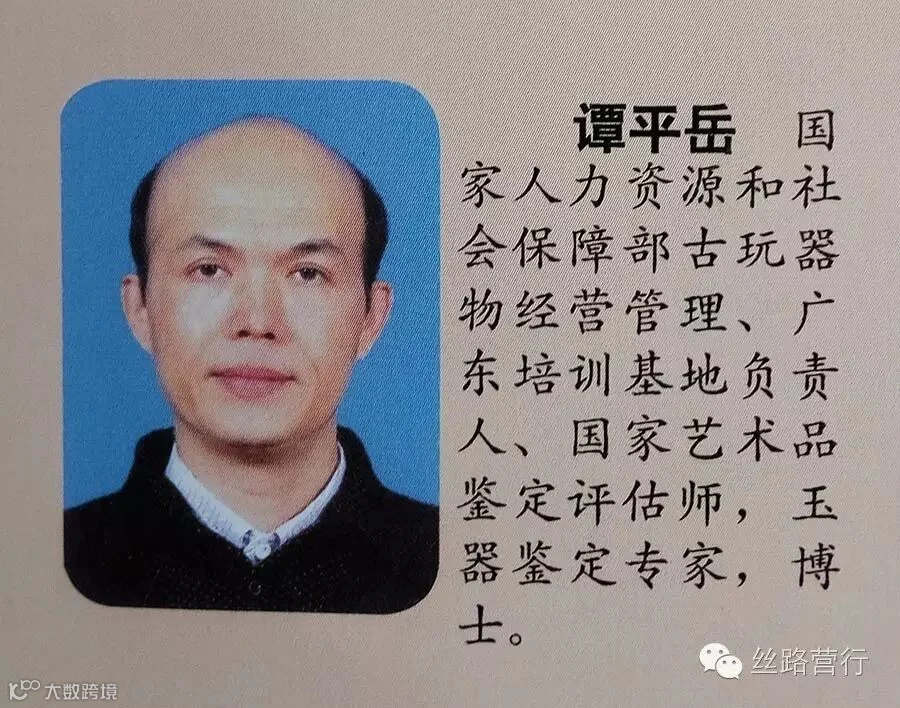 谭平岳 国
家人力资源和社
会保障部古玩器
物经营管理、广
东培训基地负责
人、国家艺术品
鉴定评估师，玉
器鉴定专家，博
士。
丝路营行
大数跨境